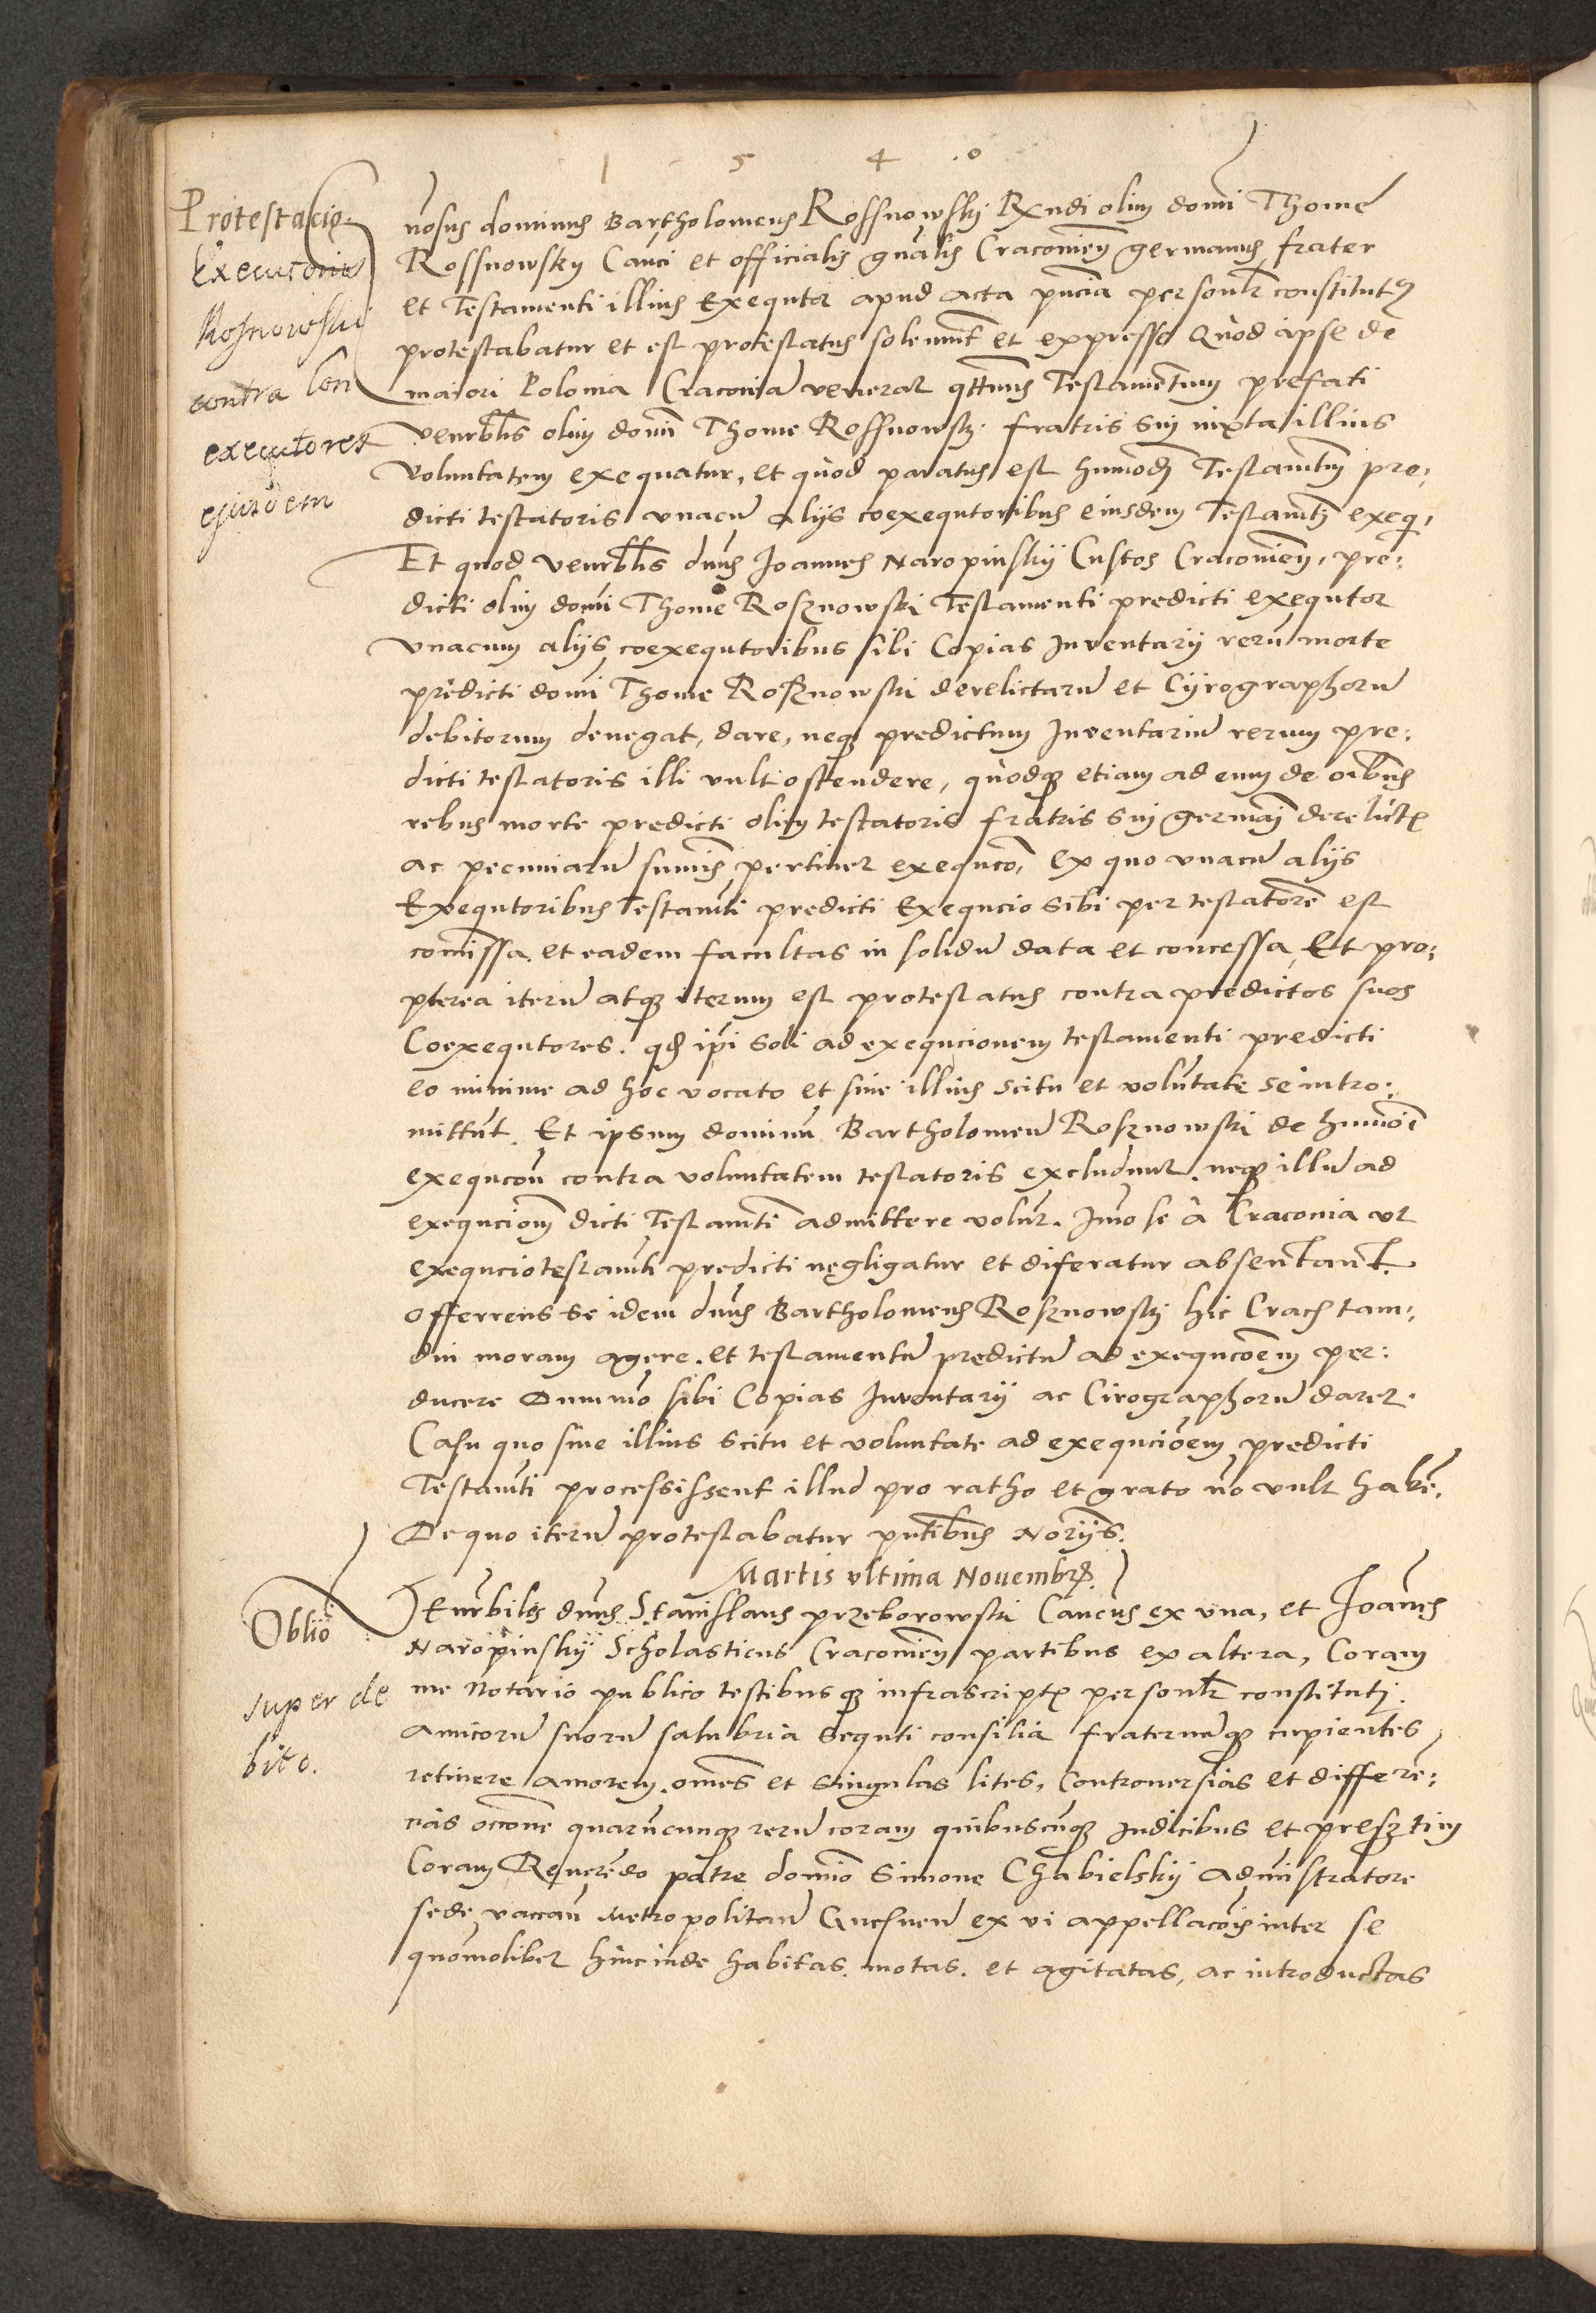 1 5 4 0
Protestacio
Executoris
Rosnowski
contra Con
executores
ejusdem
nosus dominus Bartholomeus Rossnowskÿ Rndi olim domi Thome
Rossnowsky Canci et officialis gnalis Cracovien germanus frater
et Testamenti illius Exequtor apud acta pncia personlr constitutus
protestabatur et est protestatus solemnt et expresse Quod ipse de
maiori Polonia Cracoviam venerat qttmus Testamentum prefati
venrblis olim domi Thome Rossnowskÿ fratris sui iuxta illius
voluntatem exequatur, et quod paratus est hmmodi Testamtum pre:
dicti testatoris unacum alÿs coexequtoribus eiusdem Testamti exeqi,
Et quod venrblis dnus Joannes Naropinskÿ Custos Cracovien, pre:
dicti olim domi Thome Rosznowski Testamenti predicti exequtor
vnacum alÿs coexequtoribus sibi Copias Inventarÿ reru morte
predicti domi Thome Rosznowski derelictaru et Cÿrographoru
debitorum denegat, dare, neqз predictum Inventariu rerum pre:
dicti testatoris illi vult ostendere, quodqз etiam ad eum de oibus
rebus morte predicti olim testatoris fratris sui germai derelictis
ac pecuniaru sumis pertinet exequco, ex quo vnacu alÿs
Exequtoribus Testamti predicti Exequcio sibi per testatore est
comissa et eadem facultas in solidu data et concessa, Et pro:
pterea iteru atqз iterum est protestatus contra predictos suos
Coexequtores. qd ipi soli ad exequcionem testamenti predicti
eo minime ad hoc vocato et sine illius scitu et voluntate se intro:
mittunt. Et ipsum dominu Bartholomeu Rosznowski de hmmoi
exequcou contra voluntatem testatoris excludunt. neqз illu ad
exequciom dicti Testamti admittere volut. Imo se a Cracovia vt
exequcio testamti predicti negligatur et diferatur absentant.
offerrens se idem dnus Bartholomeus Rosznowskÿ hic Crach tam:
diu moram agere. et testamentu predictu ad exequcoem per:
ducere Dummo sibi Copias Inventarÿ ac Cirographoru daret.
Casu quo sine illius scitu et voluntate ad exequcioem predicti
Testamti processissent illud pro ratho et grato no vult habe.
De quo iteru protestabatur pntibus Norÿs.
Martis vltima Novembrs.
Oblio
super de
bito.
Venrbiles dnus Stanislaus przeborowski Cancus ex vna, et Joannes
Naropinskÿ Scholasticus Cracovien partibus ex altera, Coram
me Notario publico testibusqз infrascriptis personlr constituti.
Amicoru suoru salubria sequti consilia fraternuqз cupientes
retinere amorem. omes et singulas lites, Controversias et differe:
ncias occone quarucunqз reru coram quibuscuqз Iudicibus et presztim
Coram Reverendo patre domio Simone Chabielskÿ Admistratore
sede vaccan Metropolitan Gnesnen ex vi appellacois inter se
quomolibet hincinde habitas. motas. et agitatas, ac introductas